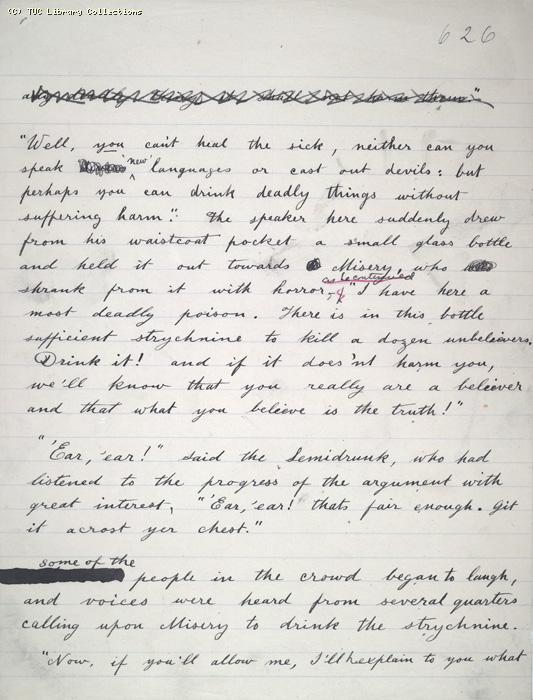 (C) TUC Library Collections
626
any deadly thing it shall not harm them."
"Well, you can't heal the sick, neither can you
new
speak languages or cast out devils: but
perhaps you can drink deadly things without
suffering harm." The speaker here suddenly drew
from his waistcoat pocket a small glass bottle
and held it out towards Misery, who
as he continued
shrank from it with horror, "I have here a
most deadly poison. There is in this bottle
sufficient strychnine to kill a dozen unbelievers.
Drink it! and if it does'nt harm you,
we'll know that you really are a believer
and that what you believe is the truth!"
"'Ear, 'ear!" said the Semidrunk, who had
listened to the progress of the argument with
great interest, "'Ear, 'ear! thats fair enough. Git
it acrost yer chest."
some of the
people in the crowd began to laugh,
and voices were heard from several quarters
calling upon Misery to drink the strychnine.
"Now, if you'll allow me, I'll explain to you what